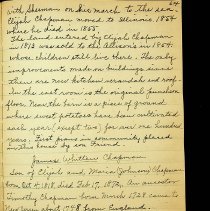 64
with Sherman on his march to the sea.
Elijah Chapman moved to Illinois, 1854
where he died in 1855.
The land entered by Elijah Chapman
in 1813 was sold to the Allison's in 1854.
whose children still live there. The only
improvements made on buildings since
then are new kitchen verandah and roof.
In the east room is the original puncheon
floor. Near the barn is a piece of ground
where sweet potatoes have been cultivated
each year (except two) for over one hundred
years. First piano in community placed
in the house by son Friend.
James Whitten Chapman
son of Elijah and Maria (Johnson) Chapman
born Oct 4, 1818 died Feb 17, 1892. An ancestor
Timothy Chapman born March 1728 came to
New Jersey about 1748 from England.